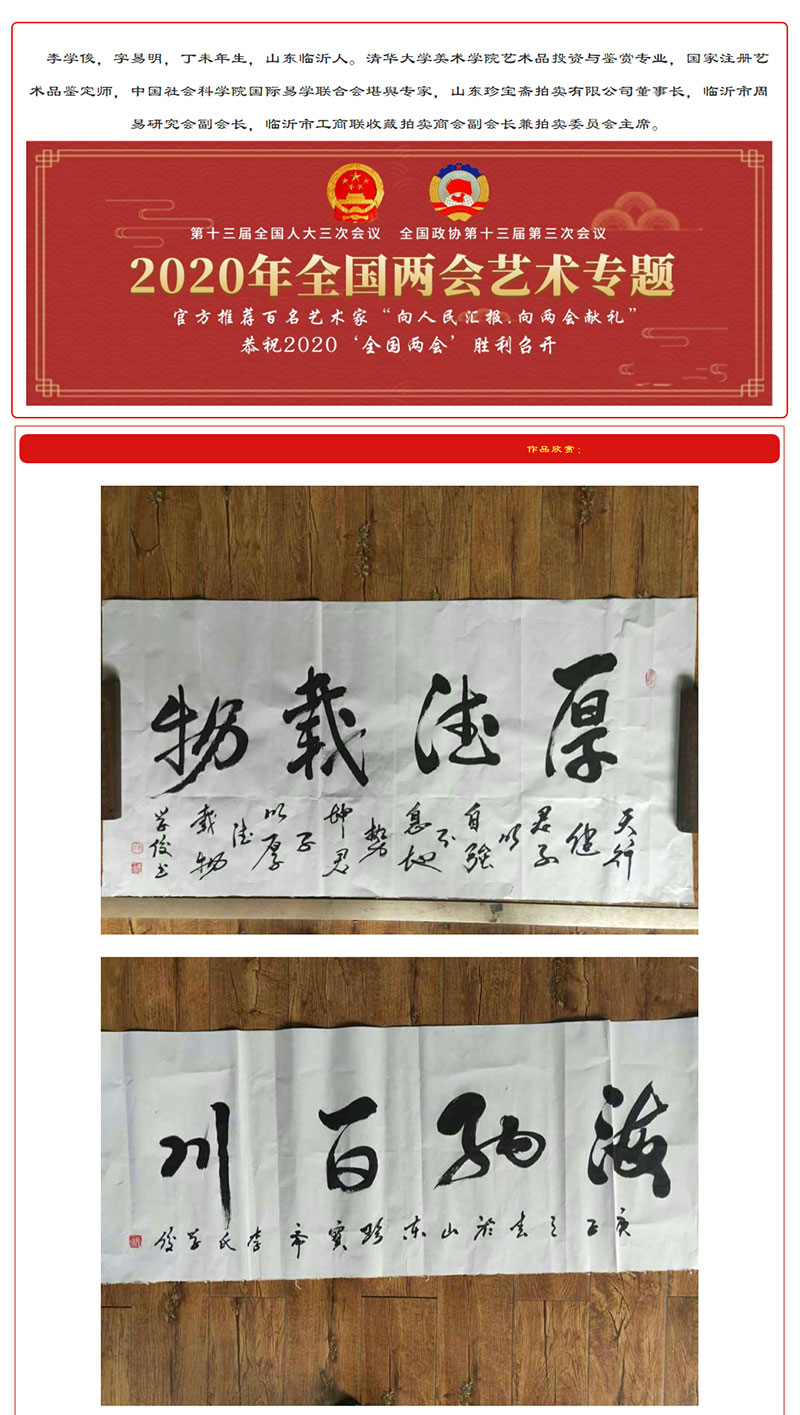 李学俊，字易明，丁未年生，山东临沂人。清华大学美术学院艺术品投资与鉴赏专业，国家注册艺
术品鉴定师，中国社会科学院国际易学联合会堪舆专家，山东珍宝斋拍卖有限公司董事长，临沂市周
易研究会副会长，临沂市工商联收藏拍卖商会副会长兼拍卖委员会主席。
第十三届全国人大三次会议 全国政协第十三届第三次会议
2020年全国两会艺术专题
官方推荐百名艺术家“向人民汇报.向两会献礼”
恭祝2020‘全国两会’胜利召开
作品欣赏：
厚德载物
天行
健
君子
以
自强
不
息地
势
坤君
子
以厚
德
载物
学俊书
海纳百川
庚子 书於山东珍宝斋李氏学俊